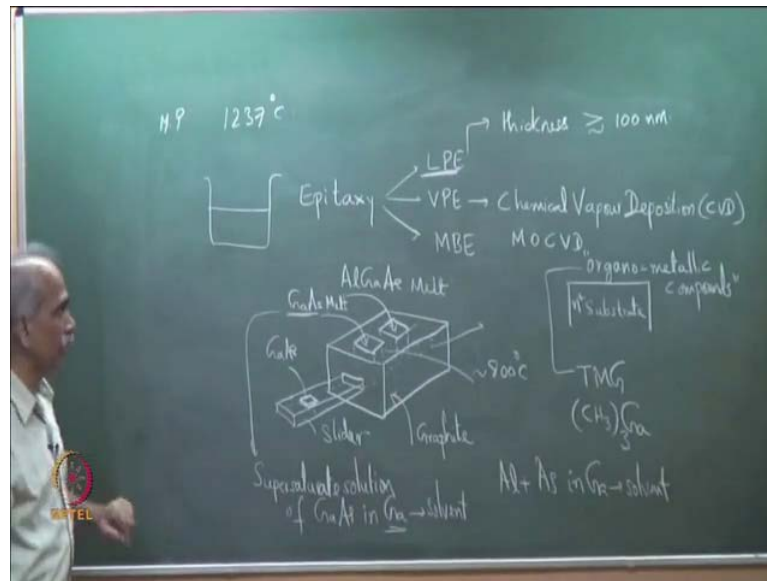 M.P 1237°C
thickness ≳ 100 nm
LPE
Epitaxy
VPE → Chemical Vapour Deposition (CVD)
MBE MOCVD
"organo-metallic
compounds"
AlGaAs Melt
GaAs Melt
n⁺ Substrate
GaAs
~800°C
TMG
Slider
Graphite
(CH₃)₃Ga
Supersaturate solution
of GaAs in Ga → solvent
Al + As in Ga → solvent
NPTEL